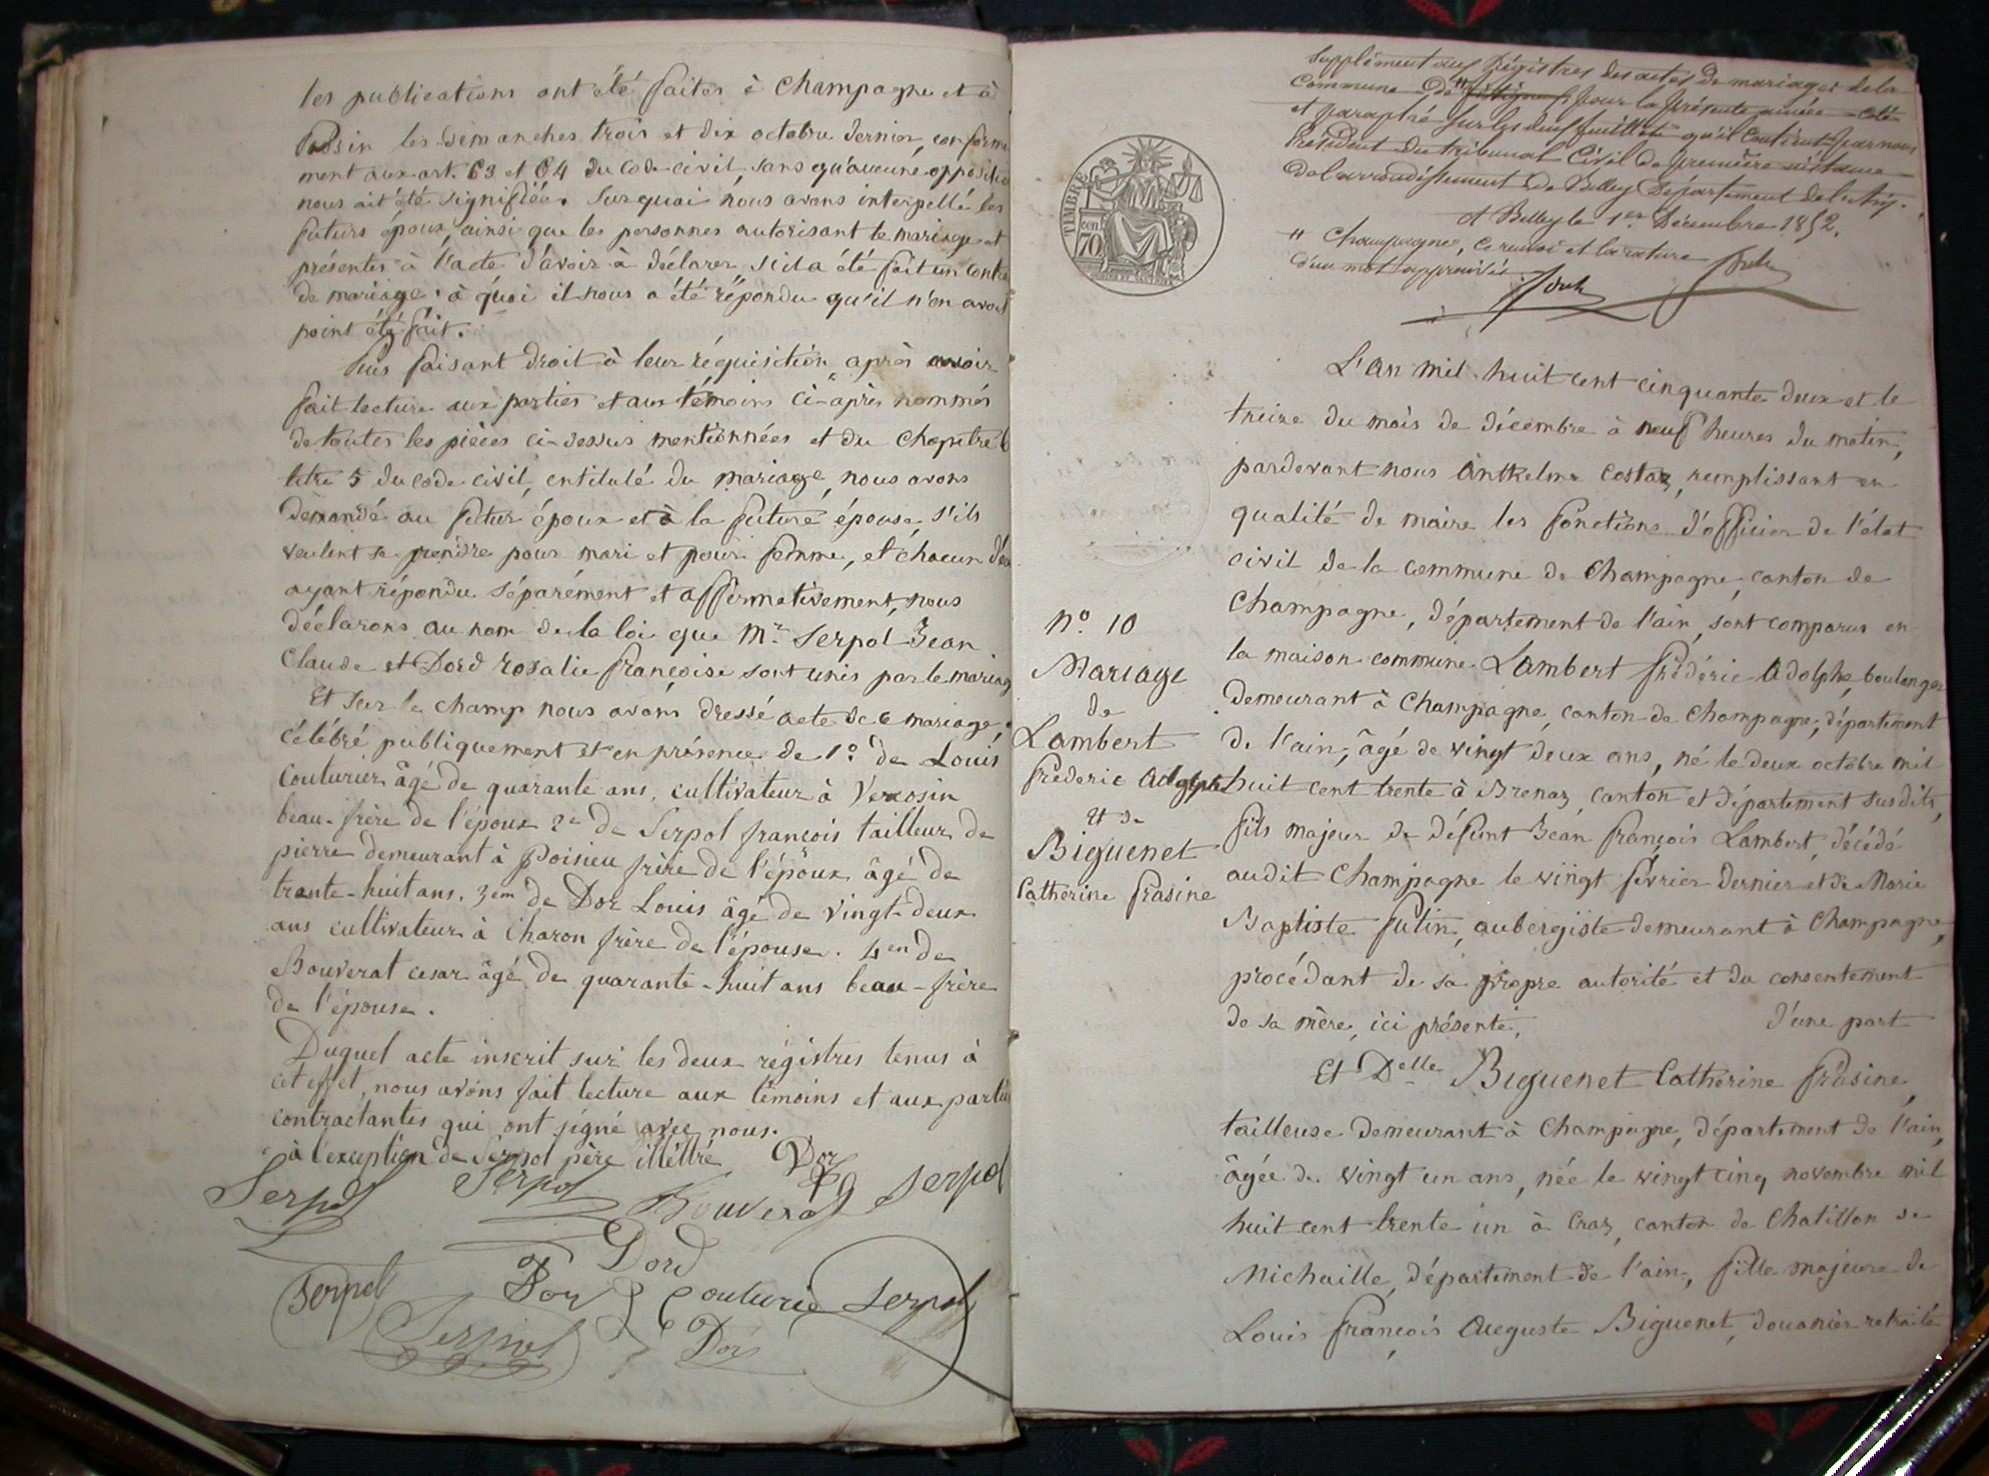 les publications ont été faites à Champagne et à
Possin les dimanches trois et dix octobre dernier, conformé
ment aux art. 63 et 64 du code civil, sans qu'aucune oppositio
nous ait été signifiée. Sur quoi nous avons interpellé les
futurs époux, ainsi que les personnes autorisant le mariage et
présentes à l'acte d'avoir à déclarer s'il a été fait un contra
de mariage, à quoi il nous a été répondu qu'il n'en avait
point été fait.
Puis faisant droit à leur réquisition, après avoir
fait lecture aux parties et aux témoins ci-après nommés
de toutes les pièces ci-dessus mentionnées et du chapitre 6
titre 5 du code civil, entitulé du mariage, nous avons
demandé au futur époux et à la future épouse s'ils
veulent se prendre pour mari et pour femme, et chacun d'eux
ayant répondu séparément et affirmativement, nous
déclarons au nom de la loi que Mr Serpol Jean
Claude et Dord rosalie françoise sont unis par le mariag
Et sur le champ nous avons dressé acte de ce mariage,
célébré publiquement et en présence de 1º de Louis
Couturier âgé de quarante ans, cultivateur à
beau-frère de l'époux 2e de Serpol françois tailleur de
pierre demeurant à Poisieu frère de l'époux âgé de
trante-huit ans. 3em de Dor Louis âgé de vingt-deux
ans cultivateur à Charon frère de l'épouse. 4en de
Bouverat cesar âgé de quarante-huit ans beau-frère
de l'épouse.
Duquel acte inscrit sur les deux régistres tenus à
cet effet, nous avons fait lecture aux témoins et aux parties
contractantes qui ont signé avec nous.
à l'exception de Serpol père illettré
Dor
Serpol Serpol Bouverat Serpol
Dord
Serpol Dor Couturie Serpol
Serpol Dor
Supplément aux Régistres des actes de mariages de la
Commune de " pour la présente année coté
et paraphé sur les deux feuillets qu'il contient par nous
Président du tribunal Civil de première instance
de l'arrondissement de Belley Département de l'Ain.
A Belley le 1er Décembre 1852.
" Champagne, ce renvoi et la rature
d'un mot approuvés
TIMBRE
70
L'An mil huit cent cinquante deux et le
treize du mois de décembre à neuf heures du matin,
pardevant nous Anthelme Costaz, remplissant en
qualité de maire les fonctions d'officier de l'état
civil de la commune de Champagne, canton de
Champagne, département de l'ain, sont comparus en
la maison commune Lambert frédéric Adolphe, boulanger
demeurant à Champagne, canton de Champagne, département
de l'ain, âgé de vingt deux ans, né le deux octobre mil
huit cent trente à Brenaz, canton et département susdits,
fils majeur de défunt Jean François Lambert, décédé
audit Champagne le vingt février dernier et de Marie
Baptiste Sutin, aubergiste demeurant à Champagne,
procédant de sa propre autorité et du consentement
de sa mère, ici présente, d'une part
Et Delle Biguenet Catherine frasine,
tailleuse demeurant à Champagne, département de l'ain,
âgée de vingt un ans, née le vingt cinq novembre mil
huit cent trente un à Craz, canton de Chatillon de
Michaille, département de l'ain, fille majeure de
Louis françois Auguste Biguenet, douanier retraité
nº 10
Mariage
de
Lambert
frederic Adolphe
et de
Biguenet
Catherine frasine